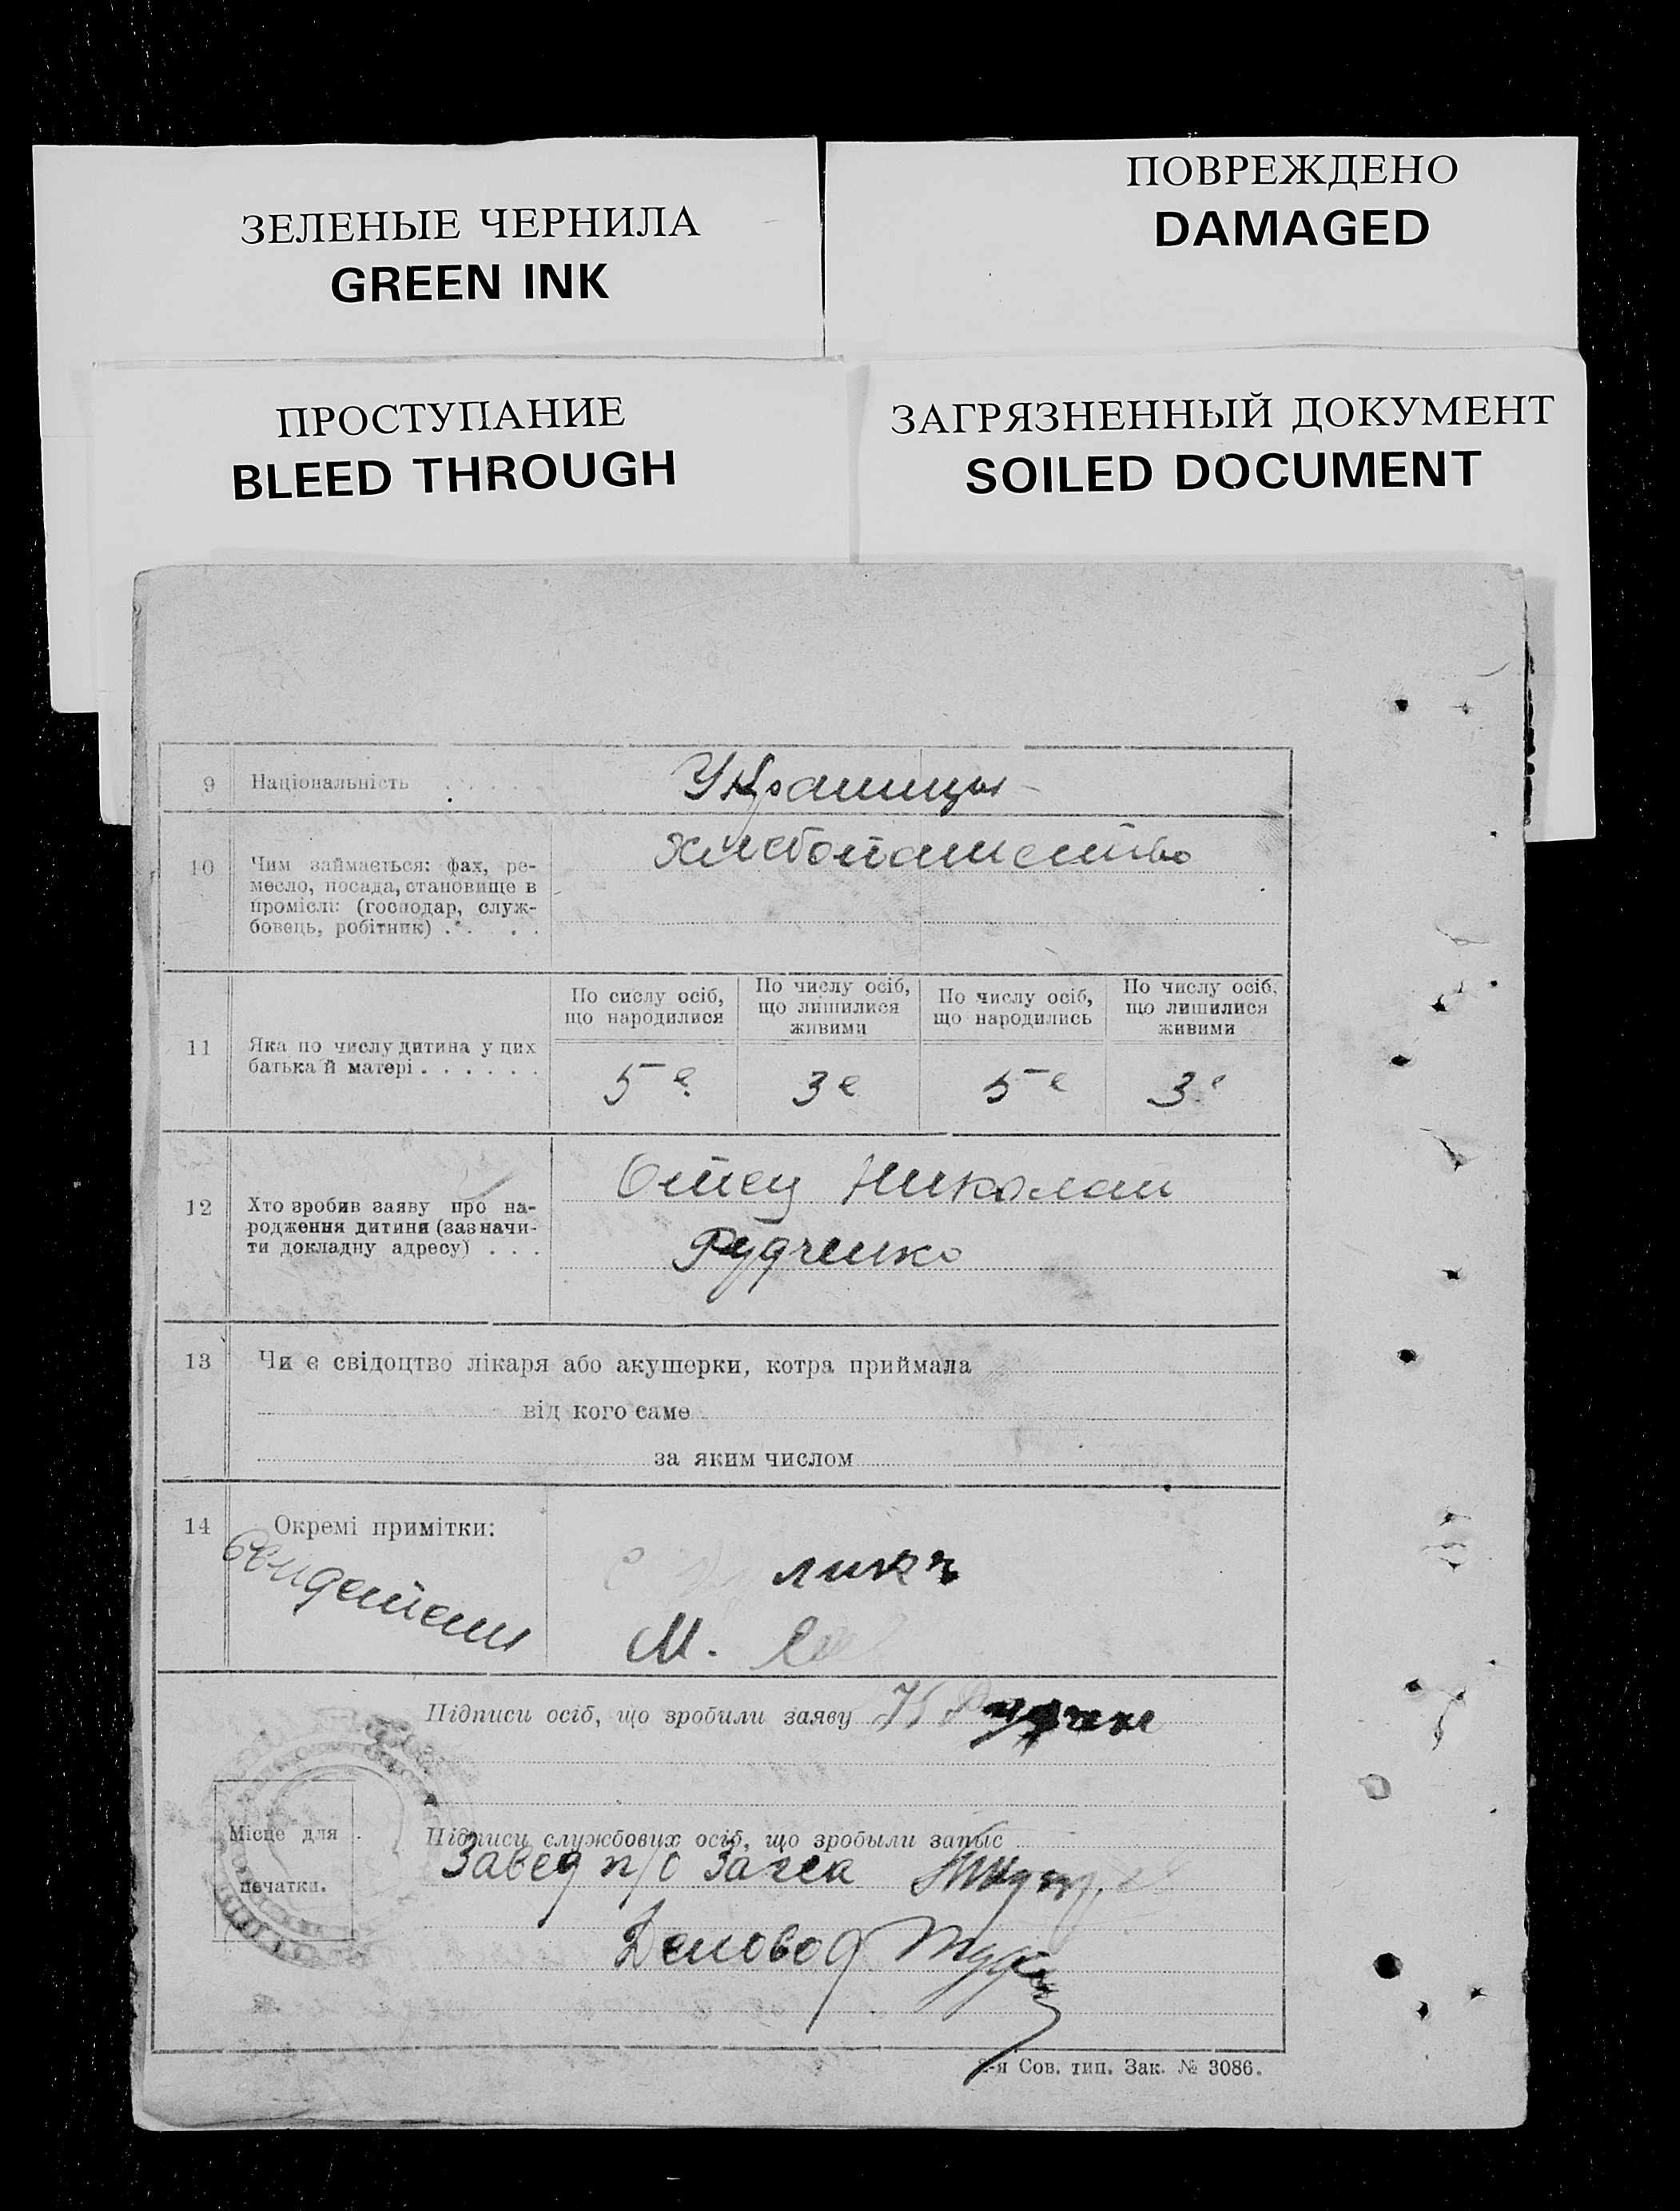 ЗЕЛЕНЫЕ ЧЕРНИЛА
GREEN INK
ПОВРЕЖДЕНО
DAMAGED
ПРОСТУПАНИЕ
BLEED THROUGH
ЗАГРЯЗНЕННЫЙ ДОКУМЕНТ
SOILED DOCUMENT
9 Національність . . . . . Украинцы
10 Чим займається: фах, ре-
месло, посада, становище в
проміслі: (господар, служ-
бовець, робітник) . . . .
Хлебопашество
11 Яка по числу дитина у цих
батька й матері . . . . . .
По сислу осіб,
що народилися
По числу осіб,
що лишилися
живими
По числу осіб,
що народились
По числу осіб,
що лишилися
живими
5е 3е 5е 3е
12 Хто зробив заяву про на-
родження дитини (зазначи-
ти докладну адресу) . . .
Отец Николай
Рудченко
13 Чи є свідоцтво лікаря або акушерки, котра приймала
від кого саме
за яким числом
14 Окремі примітки:
Свидетели
М.
Підписи осіб, що зробили заяву
Місце для
печатки.
Підписи службових осіб, що зробыли запыс
Завед п/о Загса
Деловод
я Сов. тип. Зак. № 3086.